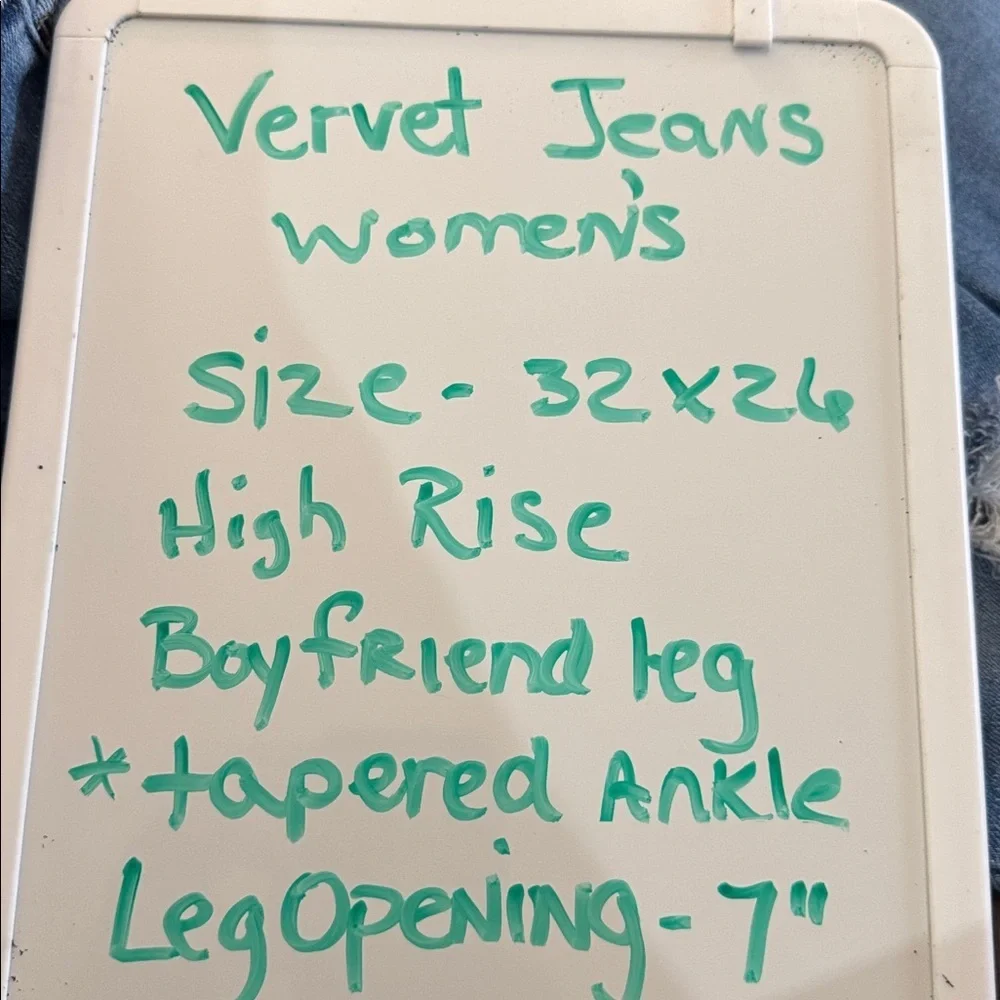 Vervet Jeans
Women's
Size - 32x26
High Rise
Boyfriend leg
*tapered Ankle
Leg Opening - 7"